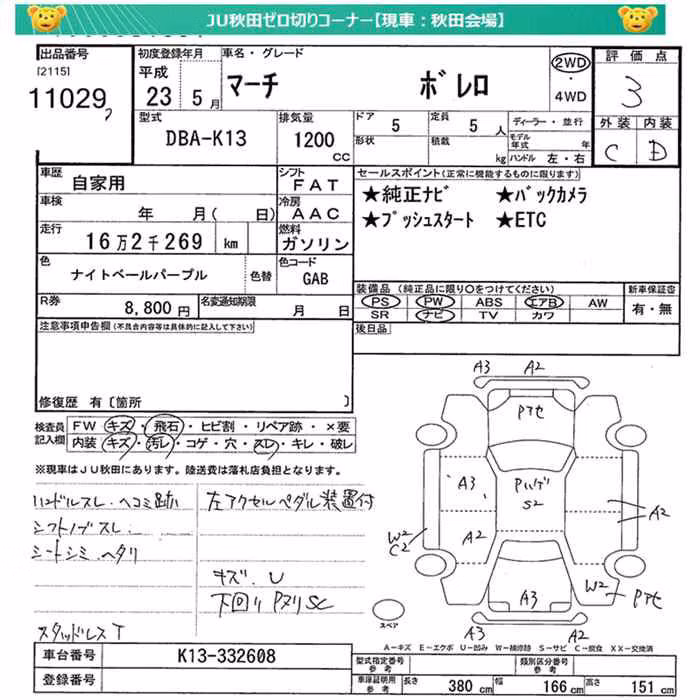 JU秋田ゼロ切りコーナー【現車：秋田会場】
出品番号
[2115]
11029
初度登録年月
平成
23 5月
車名・グレード
マーチ ボレロ
2WD
・
4WD
評価点
3
外装 内装
C D
型式
DBA-K13
排気量
1200
cc
ドア
5
定員
5 人
形状
積載
kg
ディーラー・並行
モデル
年式 年
ハンドル 左・右
車歴
自家用
シフト
FAT
車検
年 月( 日)
冷房
AAC
走行
16万2千269 km
燃料
ガソリン
色
ナイトベールパープル
色替
色コード
GAB
R券
8,800円
名変通知期限
月 日
セールスポイント(正常に機能するものに限ります)
★純正ナビ ★バックカメラ
★プッシュスタート ★ETC
装備品 (純正品に限り○をつけてください)
PS PW ABS エアB AW
SR ナビ TV カワ
新車保証書
有・無
後日品
注意事項申告欄(不具合内容等は具体的に記入して下さい)
修復歴 有〔箇所 〕
検査員
記入欄
FW キズ・飛石・ヒビ割・リペア跡・×要
内装 キズ・汚レ・コゲ・穴・スレ・キレ・破レ
※現車はJU秋田にあります。陸送費は落札店負担となります。
ハンドルスレ・ヘコミ跡
シフトノブスレ
シートシミ・ヘタリ
スタッドレスT
左アクセルペダル装置付
キズ.U
下回り Pヌリ SC
A3 A2
Pアセ
A3
Pハゲ
S2
A2
A2
W2
C2
W2
Pアセ
A3
A3 A2
スペア
A−キズ E−エクボ U−凹み W−補修跡 S−サビ C−腐食 XX−交換済
車台番号
K13-332608
登録番号
型式指定番号
参考
類別区分番号
参考
車庫証明用
参考
長さ 380 cm
幅 166 cm
高さ 151 cm